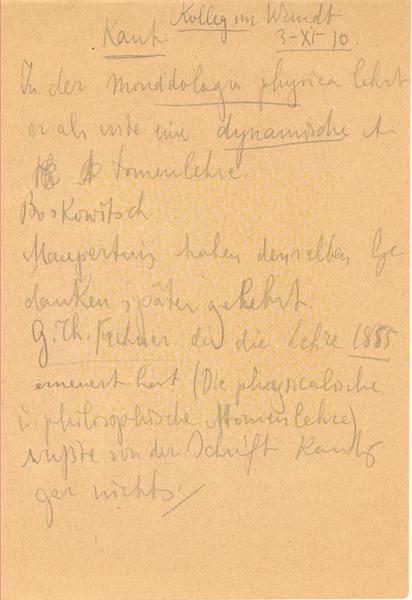 Kolleg von Wundt
Kant. 3-XI-10.
In der Monddologia physica lehrt
er als erste eine dynamische A-
tomenlehre.
Boskowitsch
Maupertuis haben denselben Ge
danken später gelehrt.
G. Th. Fechner der die Lehre 1855
erneuert hat (Die physicalische
u. philosophische Atomenlehre)
wußte von der Schrift Kants
gar nichts.